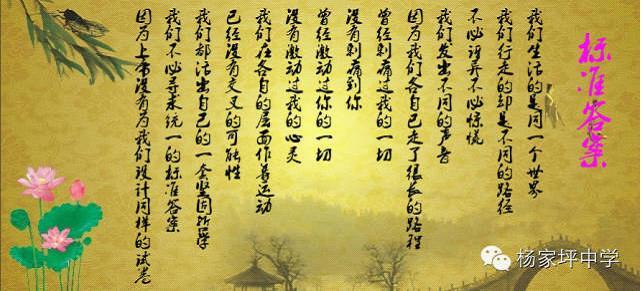 标准答案
我们生活的是同一个世界
我们行走的却是不同的路径
不必讶异不必惊慌
我们发出不同的声音
因为我们各自已走了很长的路程
曾经刺痛过我的一切
没有刺痛到你
曾经激动过你的一切
没有激动过我的心灵
我们在各自的层面作着运动
已经没有交叉的可能性
我们都活出自己的一套坚固哲学
我们不必寻求统一的标准答案
因为上帝没有为我们设计同样的试卷
杨家坪中学